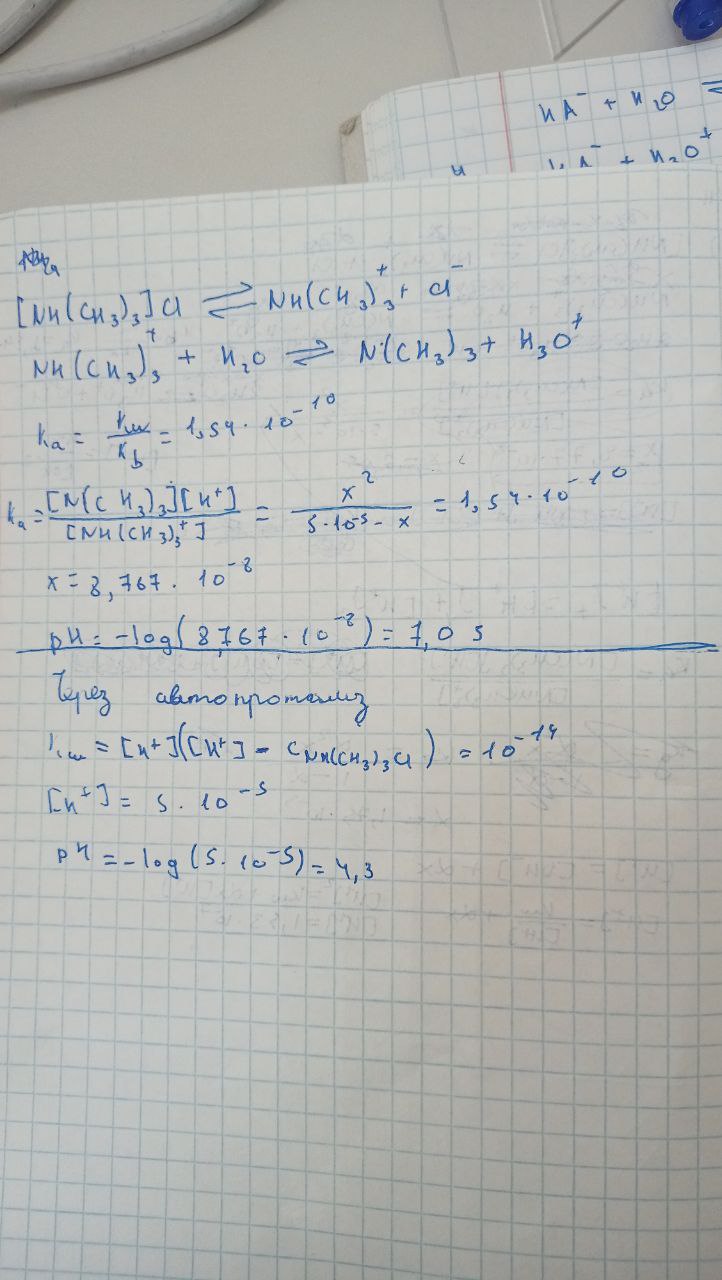 HA⁻ + H₂O ⇌
+ H₂O⁺
[NH(CH₃)₃]Cl ⇌ NH(CH₃)₃⁺ + Cl⁻
NH(CH₃)₃⁺ + H₂O ⇌ N(CH₃)₃ + H₃O⁺
Ka = Kw/Kb = 1,54 · 10⁻¹⁰
Ka = [N(CH₃)₃][H⁺]/[NH(CH₃)₃⁺] = x²/(5·10⁻⁵ - x) = 1,54·10⁻¹⁰
x = 8,767 · 10⁻⁸
pH = -log(8,767 · 10⁻⁸) = 7,05
Через автопротолиз
Kw = [H⁺]([H⁺] - C NH(CH₃)₃Cl) = 10⁻¹⁴
[H⁺] = 5 · 10⁻⁵
pH = -log(5·10⁻⁵) = 4,3